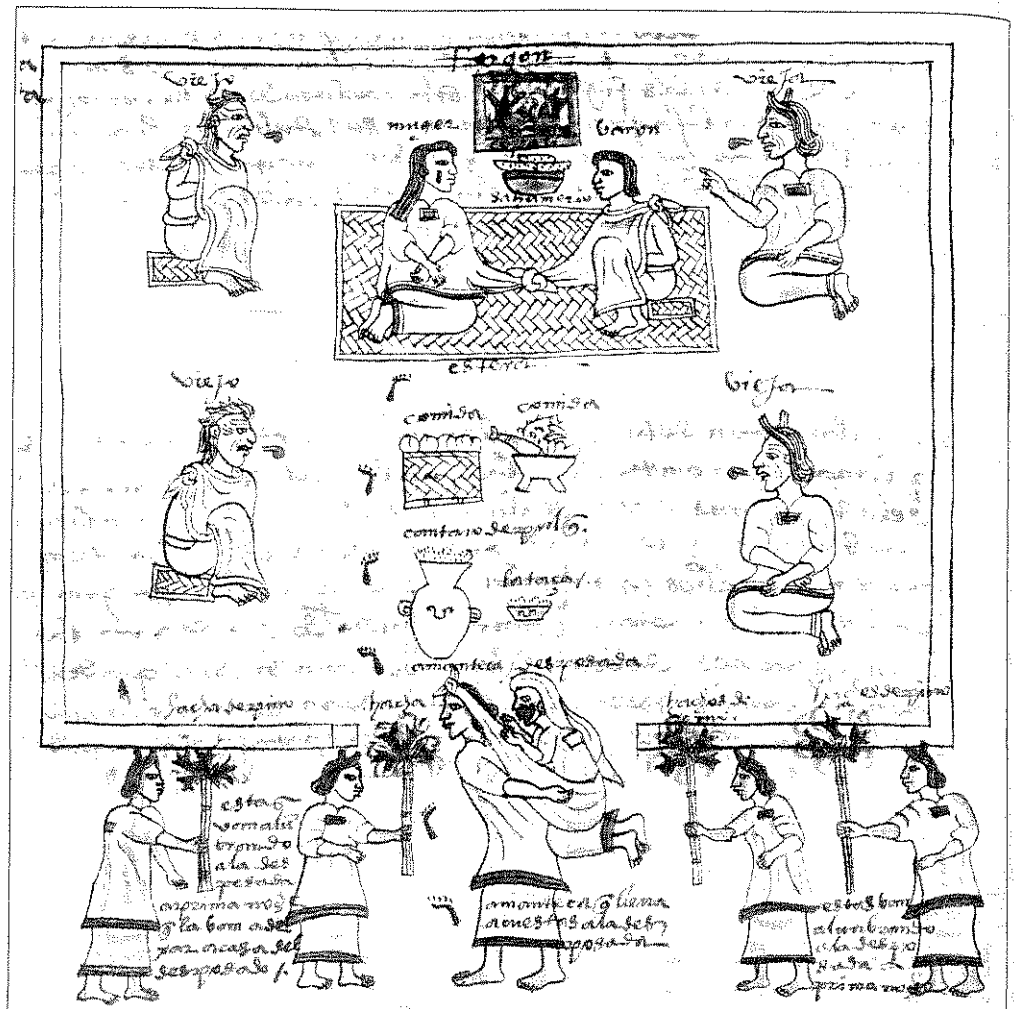 fogon
viejo
vieja
muger
baron
sahumerio
estera
viejo
vieja
comida
comida
cantaro de pulq.
la taça /.
amanteca desposada
hacha de pino
hacha
haches de
haches de pino
estas
van alū
brando
a la des
posada
a prima noch
q la van a de
xar a casa del
desposado /.
amanteca q lleva
a cuestas a la des
posada
estas van
alumbrando
a la despo
sada a
prima noch